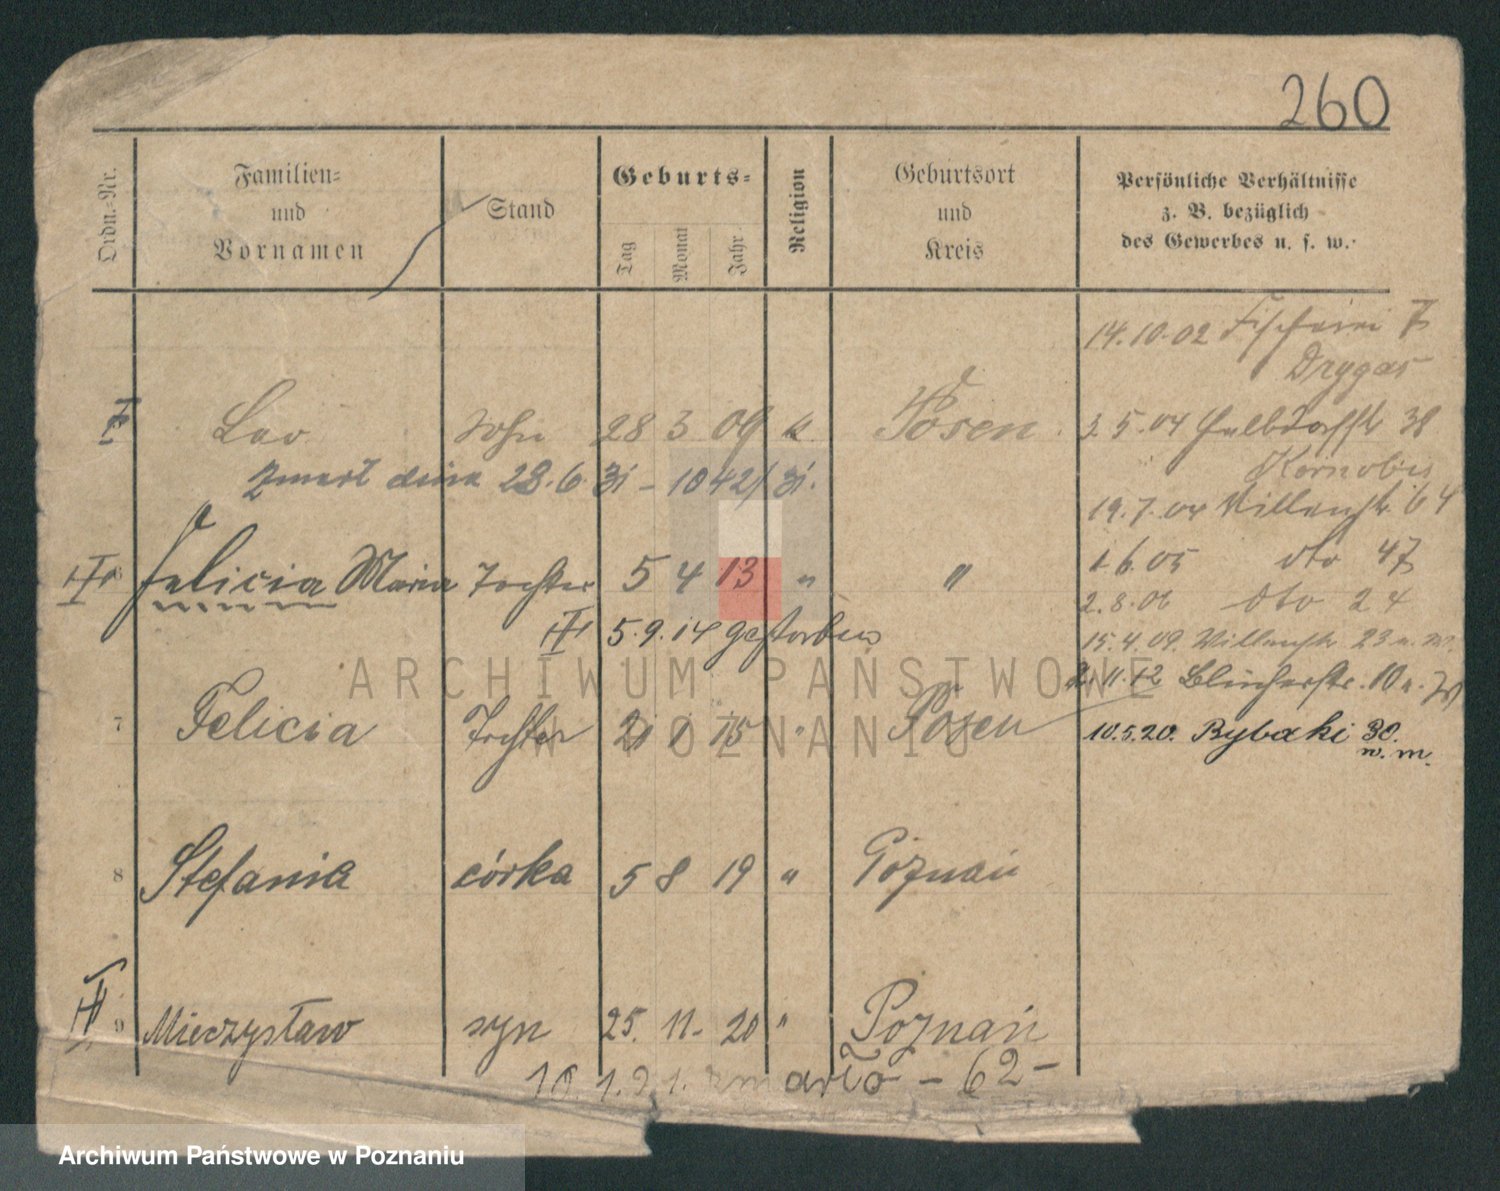 260
Ordn.-Nr.
Familien-
und
Vornamen
Stand
Geburts-
Tag
Monat
Jahr
Religion
Geburtsort
und
Kreis
Persönliche Verhältnisse
z. B. bezüglich
des Gewerbes u. s. w.
14.10.02 Fischerei 7
Drygas
Leo Sohn 28 3 09 k Posen
3.5.04 Halbdorfstr 38
zmarł dnia 28.6.31 - 1042/31.
19.7.04 Villenstr. 64
Felicia Maria Tochter 5 4 13 " "
1.6.05 dto 47
2.8.06 dto 24
5.9.14 gestorben
15.4.09 Villenstr 23
11.12 Blücherstr. 10
7 Felicia Tochter 21 1 15 " Posen
10.5.20. Rybaki 30.
w. m.
8 Stefania córka 5 8 19 " Poznań
9 Mieczysław syn 25. 11. 20 " Poznań
10.1.21. zmarło - 62 -
ARCHIWUM PAŃSTWOWE
W POZNANIU
Archiwum Państwowe w Poznaniu